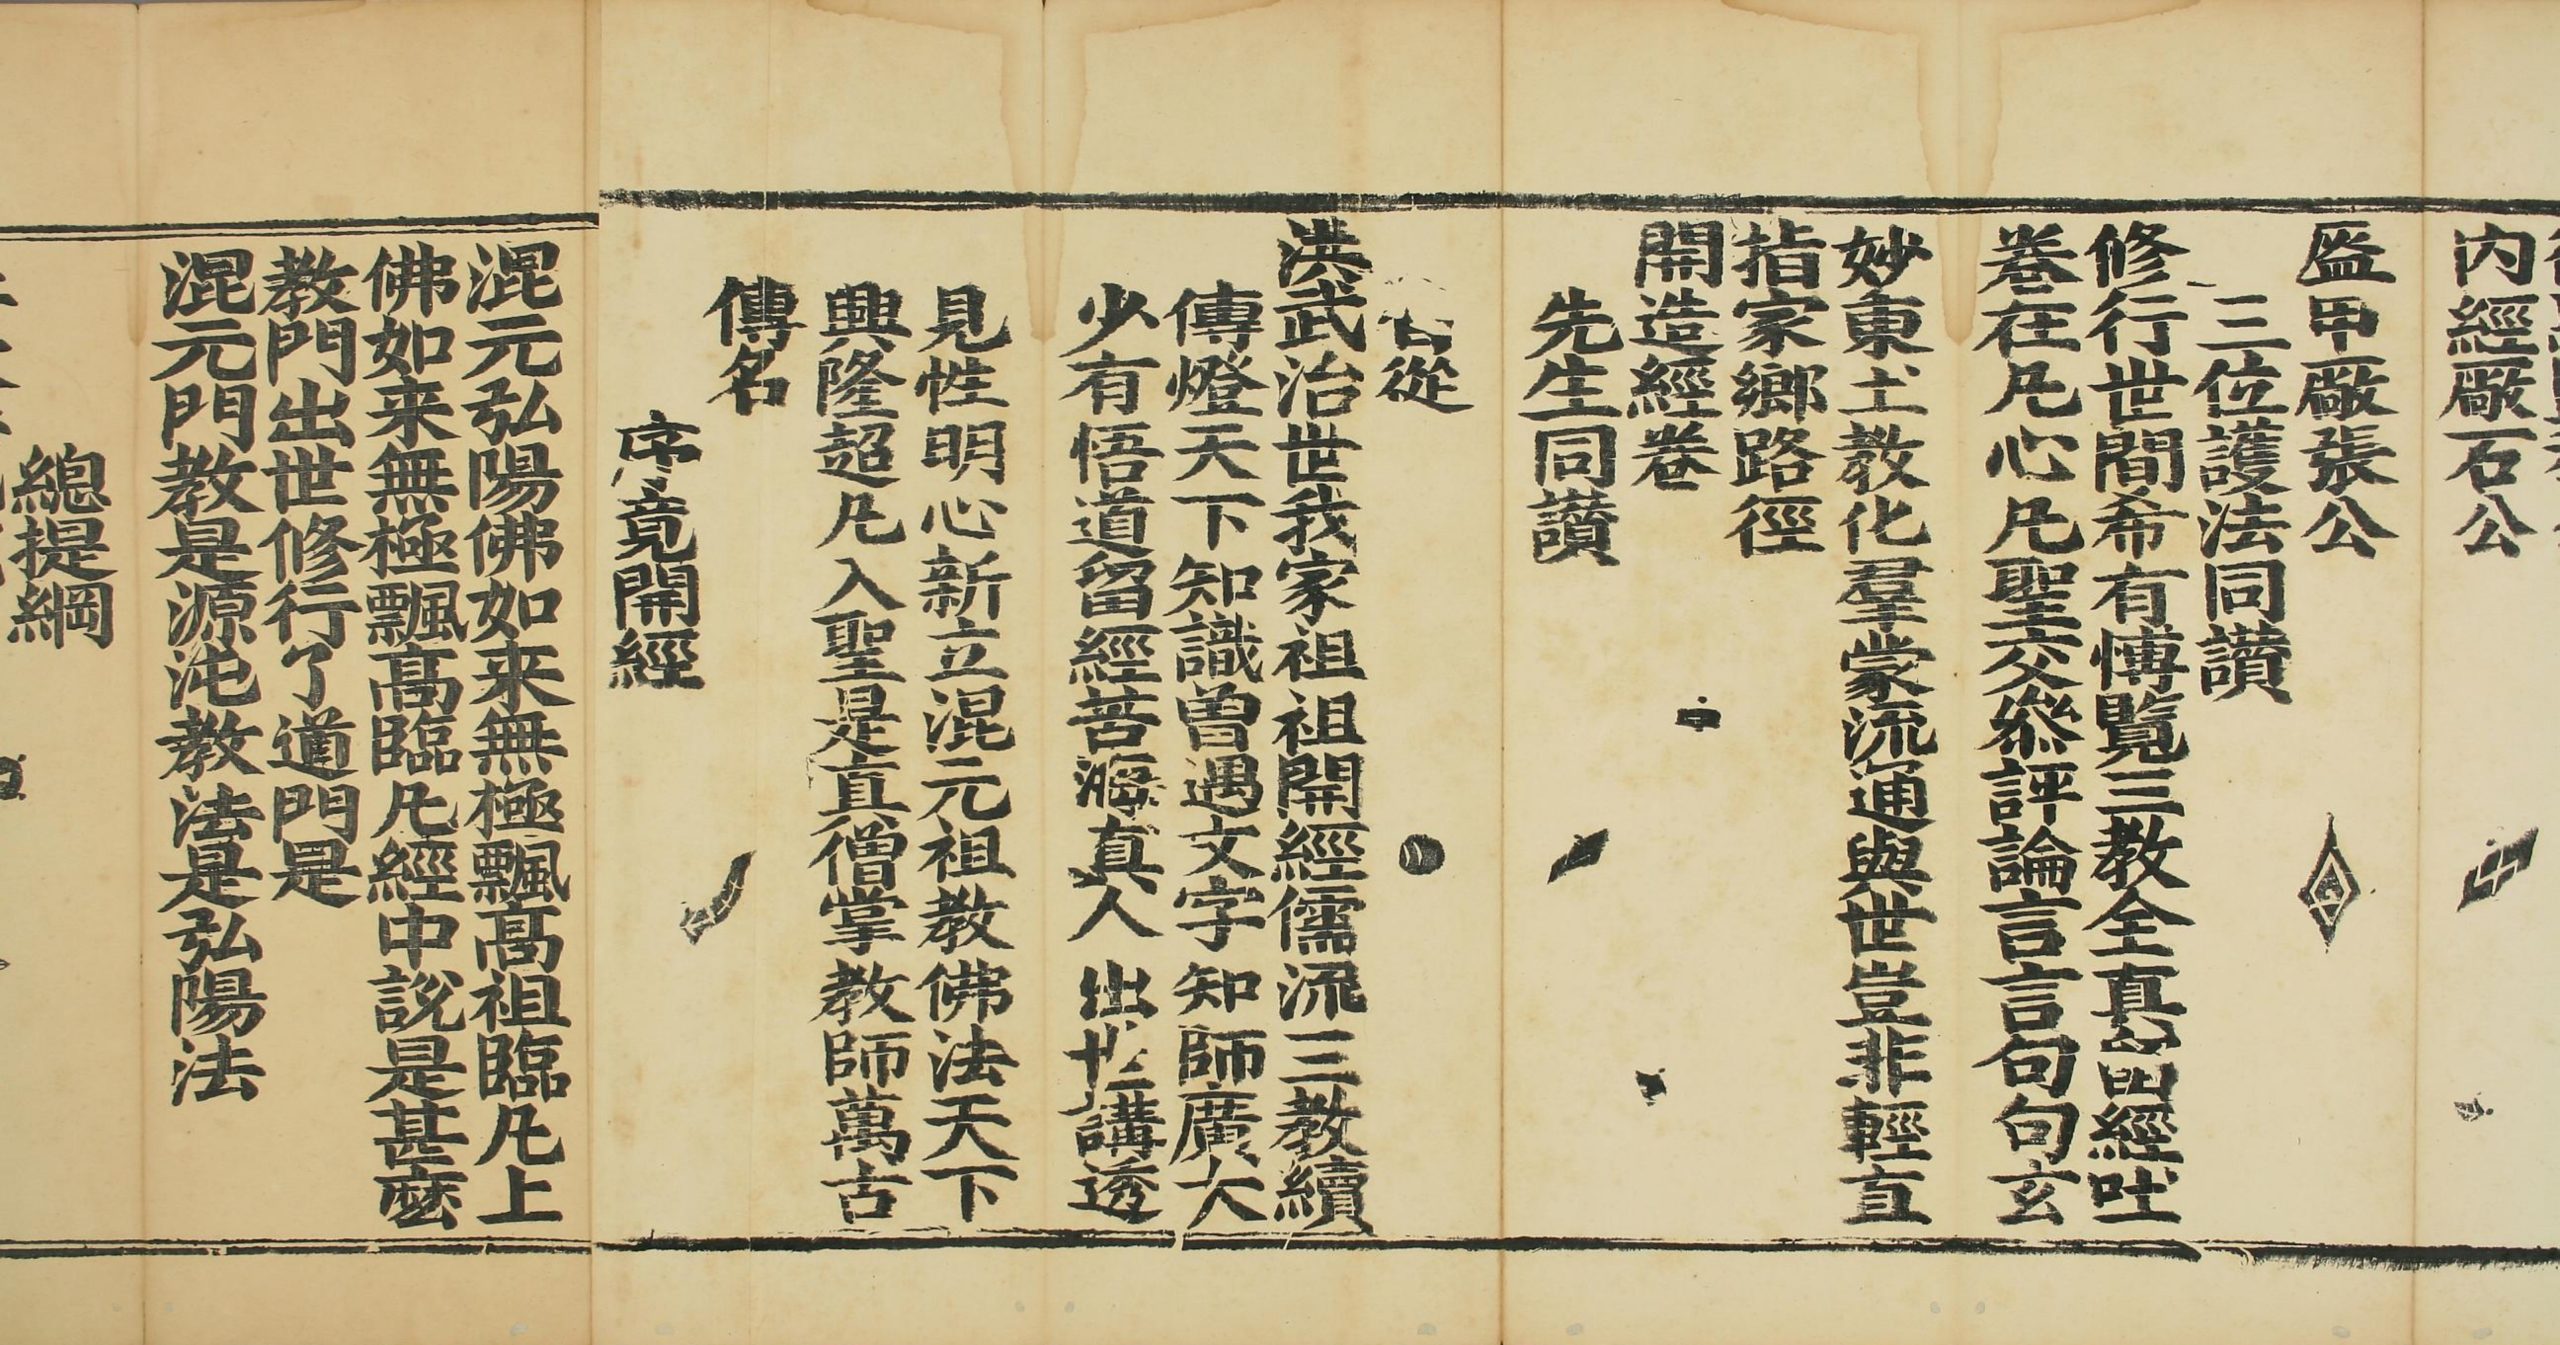 内經廠石公
盔甲廠張公
三位護法同讃
修行世間希有愽覧三教全真留經吐
卷在凡心凡聖交叅評論言言句句玄
妙東土教化羣蒙流通與世豈非輕直
指家鄉路徑
開造經卷
先生同讃
昔從
洪武治世我家祖祖開經儒流三教續
傳燈天下知識曽遇文字知師廣大
少有悟道留經苦海真人出世講透
見性明心新立混元祖教佛法天下
興隆超凡入聖是真僧掌教師萬古
傳名
序竟開經
混元弘陽佛如来無極飄髙祖臨凡上
佛如来無極飄髙臨凡經中説是甚麼
教門出世修行了道門是
混元門教是源沌教法是弘陽法
總提綱